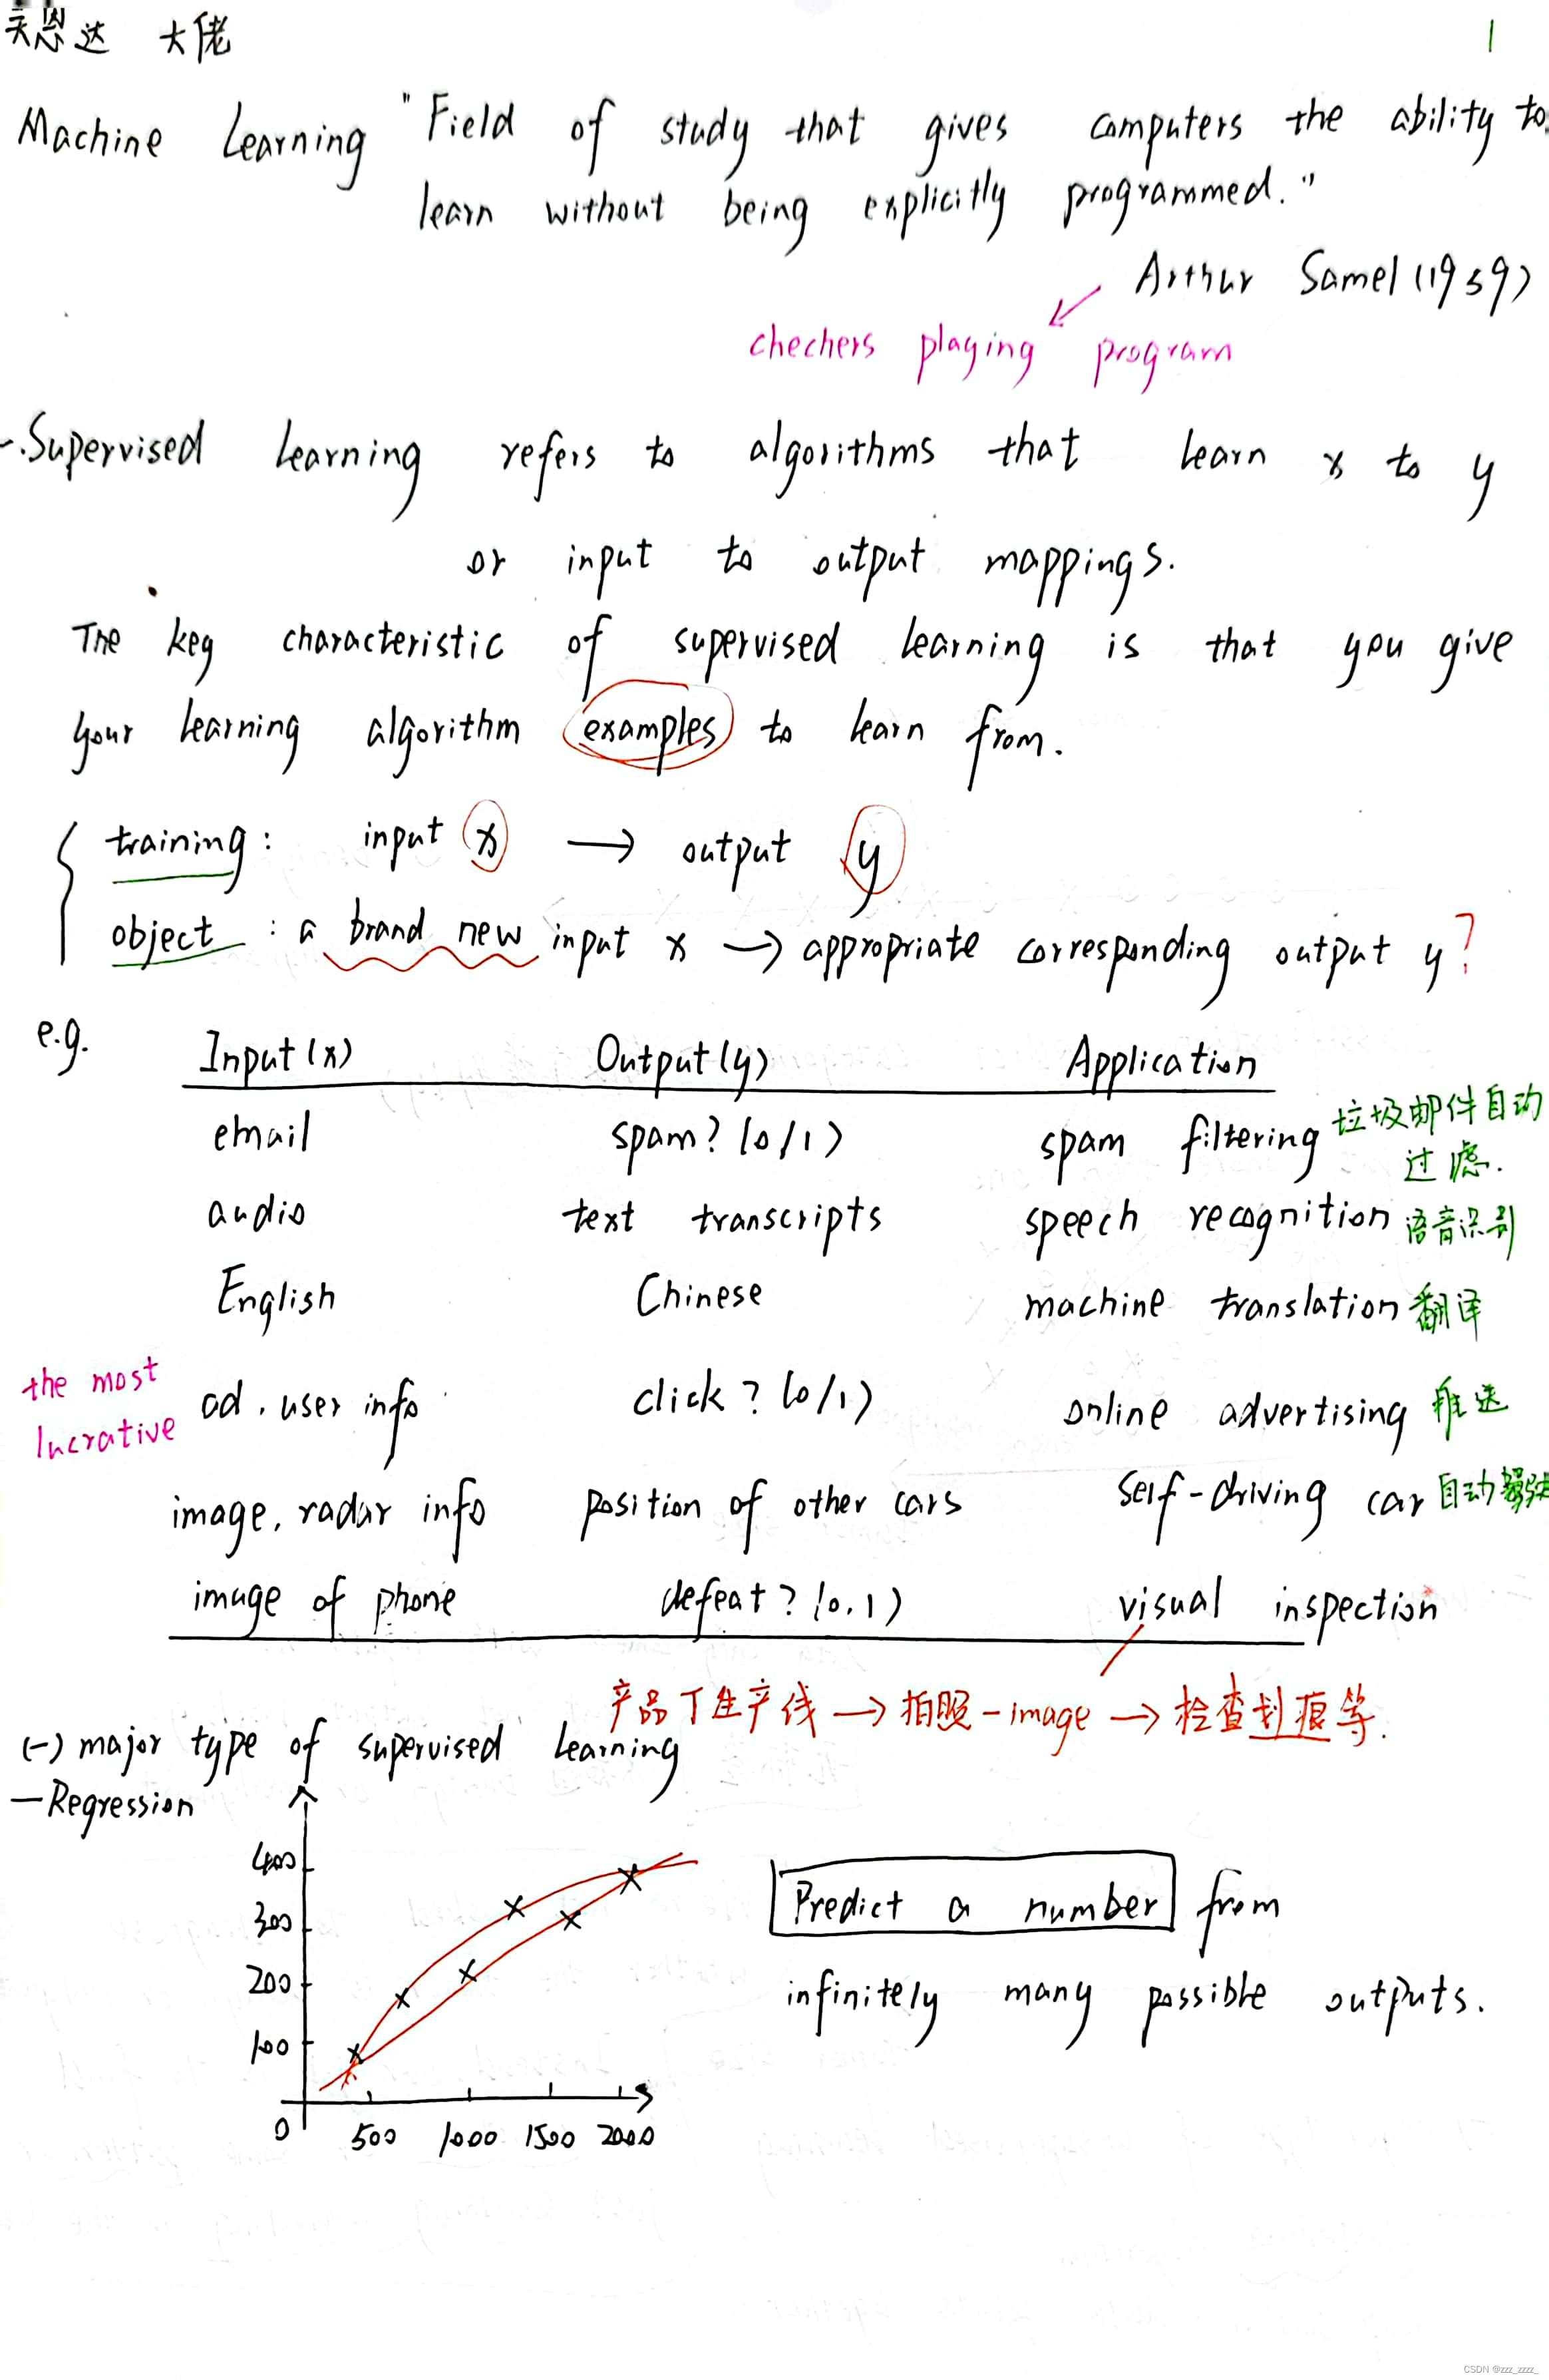 吴恩达 大佬
1
Machine Learning "Field of study that gives computers the ability to
learn without being explicitly programmed."
Arthur Samel (1959)
chechers playing program
一.Supervised learning refers to algorithms that learn x to y
or input to output mappings.
The key characteristic of supervised learning is that you give
your learning algorithm examples to learn from.
training: input x → output y
object : a brand new input x → appropriate corresponding output y?
e.g. Input(x) Output(y) Application
email spam? (0/1) spam filtering 垃圾邮件自动
过虑.
audio text transcripts speech recognition 语音识别
English Chinese machine translation 翻译
the most
lucrative
ad, user info click? (0/1) online advertising 推送
image, radar info position of other cars self-driving car 自动驾驶
image of phone defeat? (0,1) visual inspection
产品下生产线 → 拍照-image → 检查划痕等.
(一) major type of supervised learning
—Regression
400
300
200
100
0 500 1000 1500 2000
Predict a number from
infinitely many possible outputs.
CSDN @zzz_zzzz_